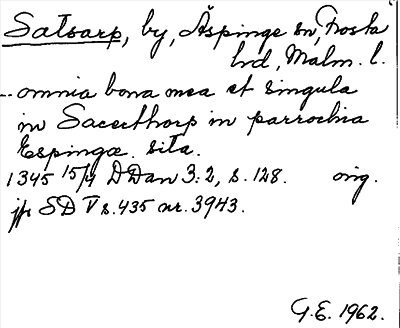 Satsarp, by, Äspinge sn, Frosta
hd, Malm. l.
-- omnia bona mea et singula
in Sacerthorp in parrochia
Espingæ sita.
1345 15/4 DDan 3:2, s. 128. orig.
jfr SD V s. 435 nr. 3943.
G.E. 1962.